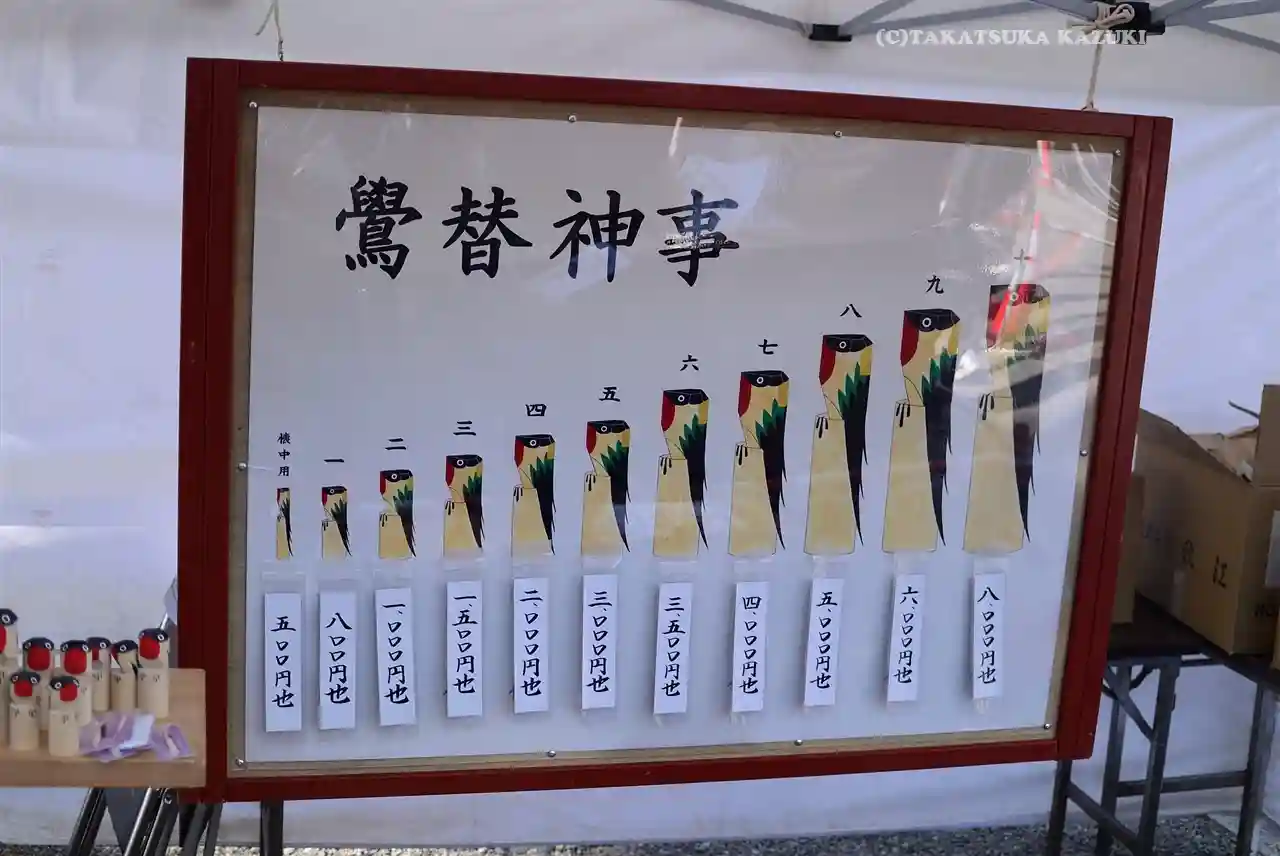 (C)TAKATSUKA KAZUKI
鷽替神事
懐中用
一
二
三
四
五
六
七
八
九
十
五〇〇円也
八〇〇円也
一、〇〇〇円也
一、五〇〇円也
二、〇〇〇円也
三、〇〇〇円也
三、五〇〇円也
四、〇〇〇円也
五、〇〇〇円也
六、〇〇〇円也
八、〇〇〇円也
江